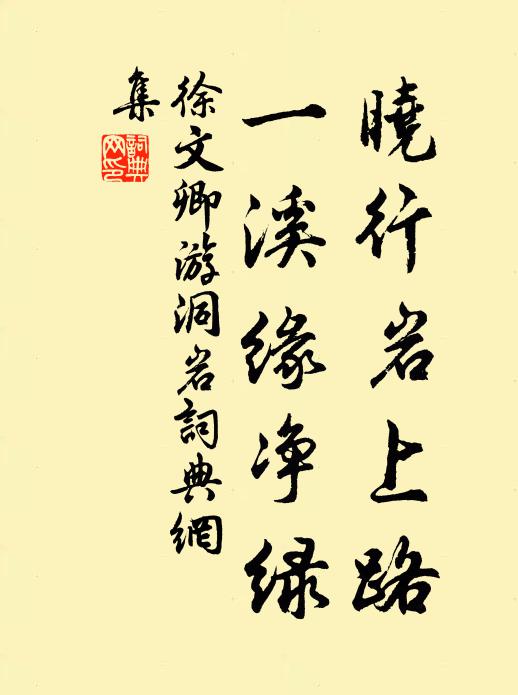 曉行岩上路
一溪緣净绿
徐文卿游洞岩詞典網
集
詞典
网印